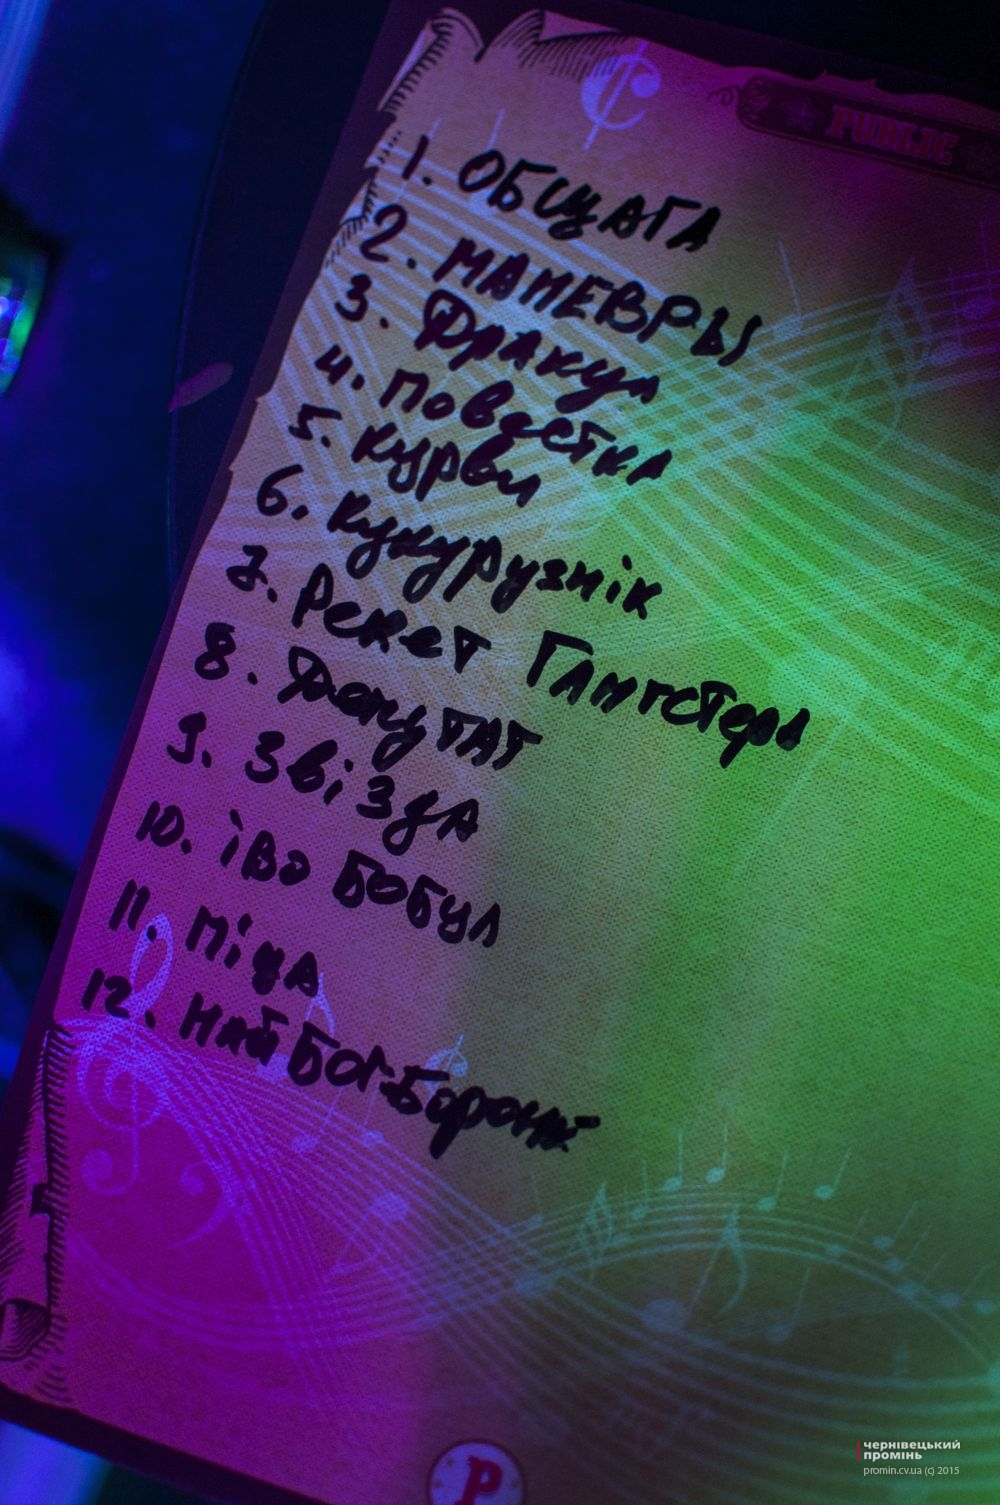 PUBLIC
1. ОБЩАГА
2. МАНЕВРЫ
3. Дракула
4. Повестка
5. Курви
6. Кукурузнік
7. Рекет Гангстеры
8. Депутат
9. Звізда
10. іво Бобул
11. Міца
12. Най Бог Боронит
P
чернівецький
промінь
promin.cv.ua (c) 2015